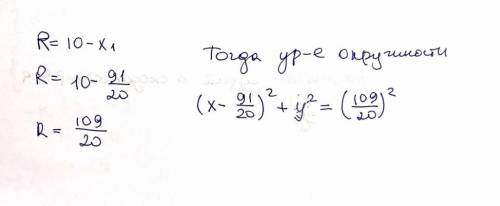 R = 10 - x₁
R = 10 - 91/20
R = 109/20
Тогда ур-е окружности
(x - 91/20)² + y² = (109/20)²